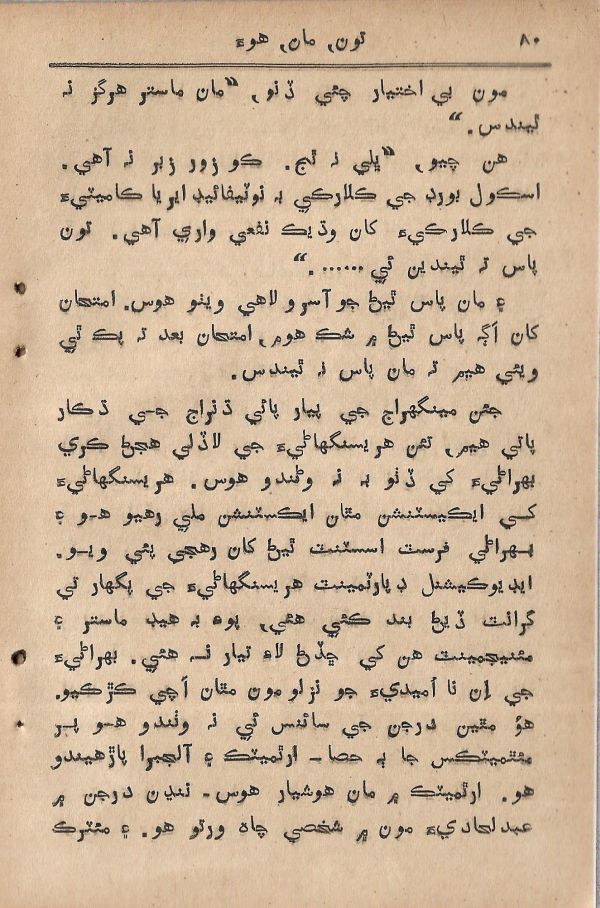 ٨٠ تون، مان، هوءَ
مون بي اختيار چئي ڏنو، ”مان ماستر هرگز نہ
ٿيندس.“
هن چيو، ”ڀلي نہ ٿج. ڪو زور زبر نہ آهي.
اسڪول بورڊ جي ڪلارڪي بہ نوٽيفائيڊ ايريا ڪاميٽيءَ
جي ڪلارڪيءَ کان وڌيڪ نفعي واري آهي. تون
پاس تہ ٿيندين ئي.......“
۽ مان پاس ٿيڻ جو آسرو لاهي ويٺو هوس. امتحان
کان اڳہ پاس ٿيڻ ۾ شڪ هوم، امتحان بعد تہ پڪ ٿي
ويئي هيم تہ مان پاس نہ ٿيندس.
جئن مينگهراج جي پيار پائي ڌنراج جي ڌڪار
پاتي هيم، تئن هريسنگهاڻيءَ جي لاڏلي هجڻ ڪري
بهراڻيءَ کي ڏٺو بہ نہ وڻندو هوس. هريسنگهاڻيءَ
کي ايڪسٽنشن مٿان ايڪسٽنشن ملي رهيو هو ۽
بهراڻي فرسٽ اسسٽنٽ ٿيڻ کان رهجي پئي ويو.
ايڊيوڪيشنل ڊپارٽمينٽ هريسنگهاڻيءَ جي پگهار تي
گرانٽ ڏيڻ بند ڪئي هئي، پوءِ بہ هيڊ ماستر ۽
مئنيجمينٽ هن کي ڇڏڻ لاءِ تيار نہ هئي. بهراڻيءَ
جي اِن نا اُميديءَ جو نزلو مون مٿان اچي ڪڙڪيو.
هوُ مٿين درجن جي سائنس ئي نہ وٺندو هو پر
مئٿميٽڪس جا ٻہ حصا- ارٿميٽڪ ۽ آلجبرا پاڙهيندو
هو. ارٿميٽڪ ۾ مان هوشيار هوس- ننڍن درجن ۾
عبدلهاديءَ مون ۾ شخصي چاهہ ورتو هو. ۽ مئٽرڪ